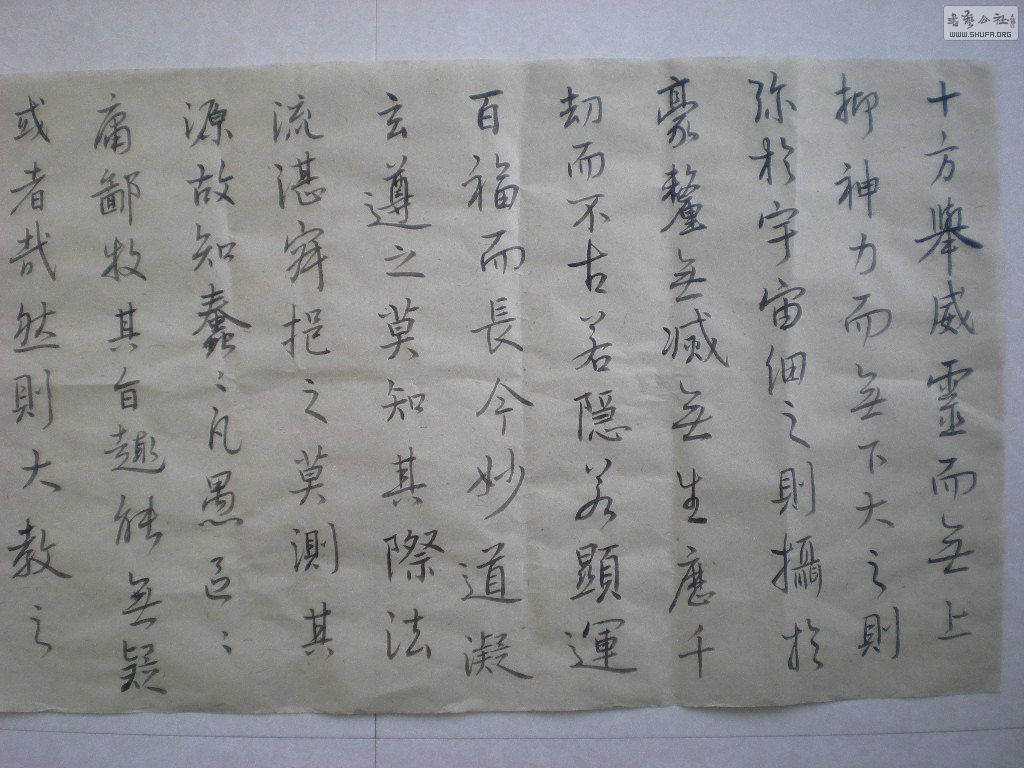 十方舉威靈而無上
抑神力而無下大之則
弥於宇宙細之則攝於
豪釐無滅無生歷千
劫而不古若隱若顯運
百福而長今妙道凝
玄遵之莫知其際法
流湛寂挹之莫測其
源故知蠢〻凡愚區〻
庸鄙投其旨趣能無疑
或者哉然則大教之
书艺公社
WWW.SHUFA.ORG